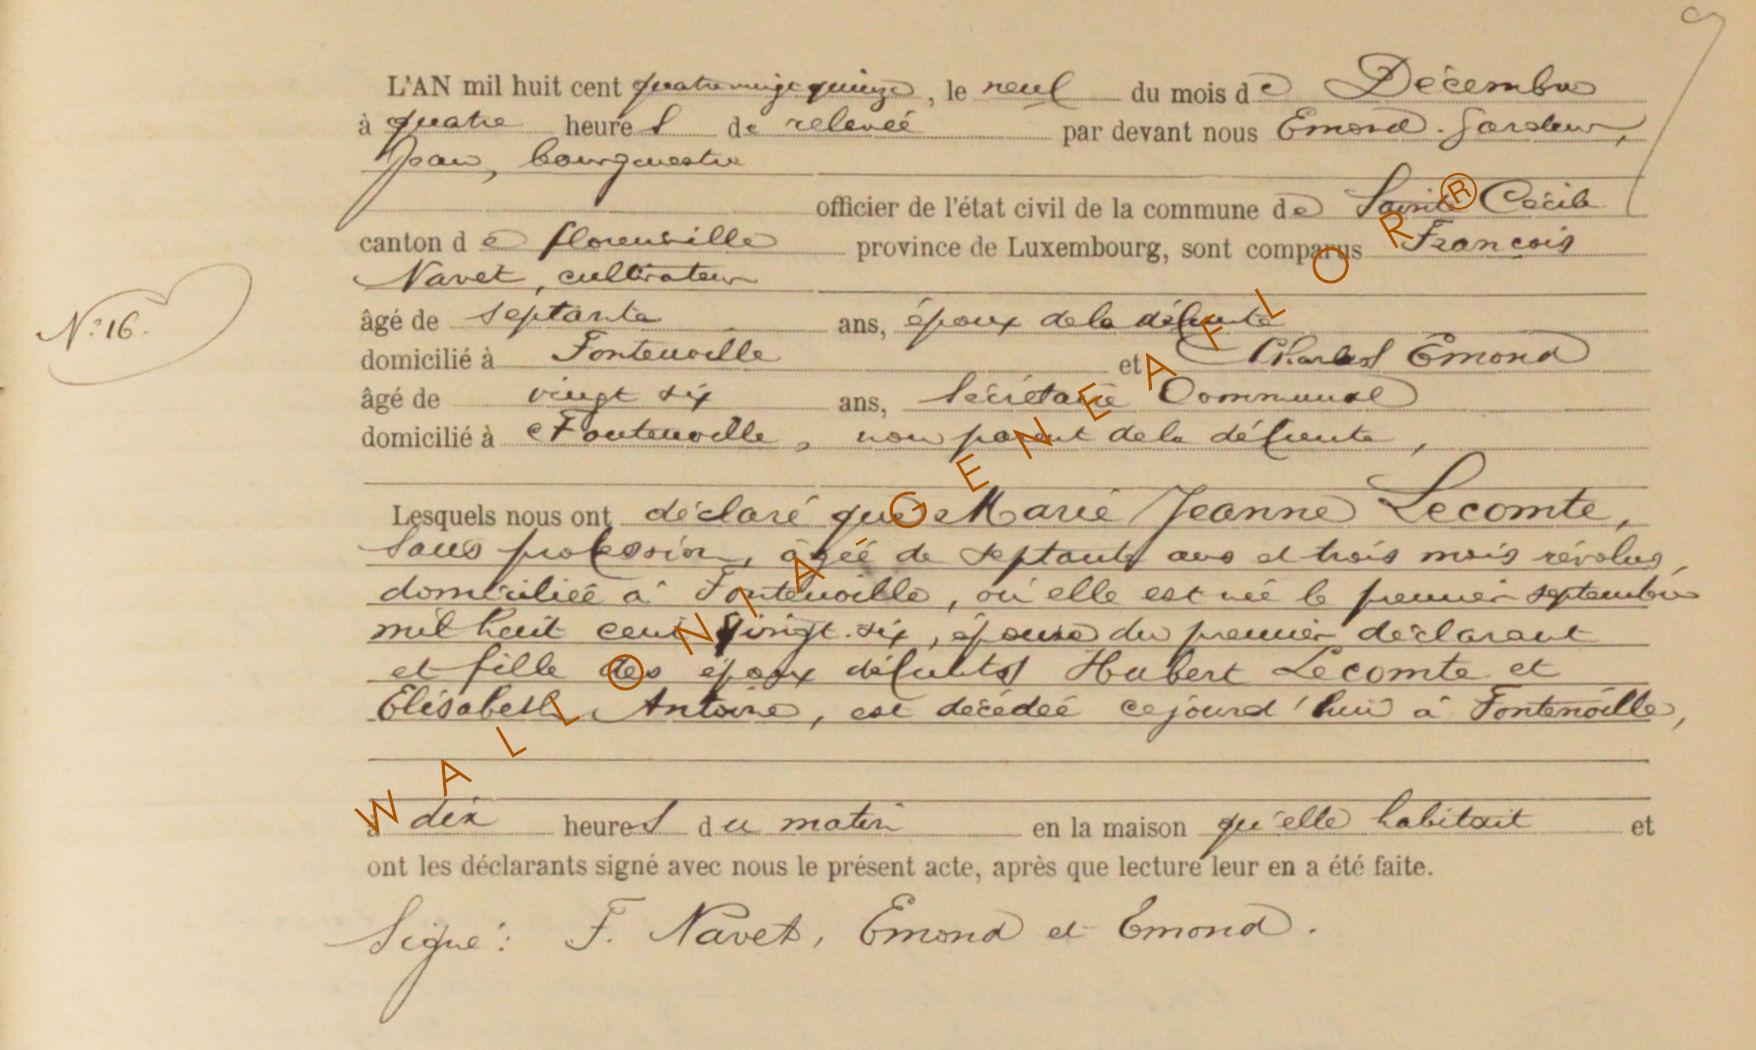 L'AN mil huit cent quatre vingt quinze, le neuf du mois de Décembre
à quatre heures de relevée par devant nous Emond. Jardeur,
Jean, bourgmestre
officier de l'état civil de la commune de Sainte Cécile
canton de florenville province de Luxembourg, sont comparus François
Navet, cultivateur
N° 16.
âgé de septante ans, époux de la défunte
domicilié à Fontenoille et Charles Emond
âgé de vingt six ans, Secrétaire Communal
domicilié à Fontenoille, non parent de la défunte,
Lesquels nous ont déclaré que Marie Jeanne Lecomte,
sans profession, âgée de septante ans et trois mois révolus,
domiciliée à Fontenoille, où elle est née le premier septembre
mil huit cent vingt-six, épouse du premier déclarant
et fille des époux défunts Hubert Lecomte et
Elisabeth Antoine, est décédée cejourd'hui à Fontenoille,
à dix heures du matin en la maison qu'elle habitait et
ont les déclarants signé avec nous le présent acte, après que lecture leur en a été faite.
Signé: F. Navet, Emond et Emond.
WALLONIA GENEAFLOR ®